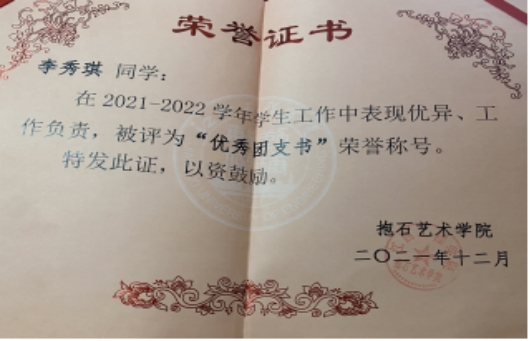 荣誉证书
李秀琪 同学：
在 2021-2022 学年学生工作中表现优异、工
作负责，被评为“优秀团支书”荣誉称号。
特发此证，以资鼓励。
抱石艺术学院
二〇二一年十二月